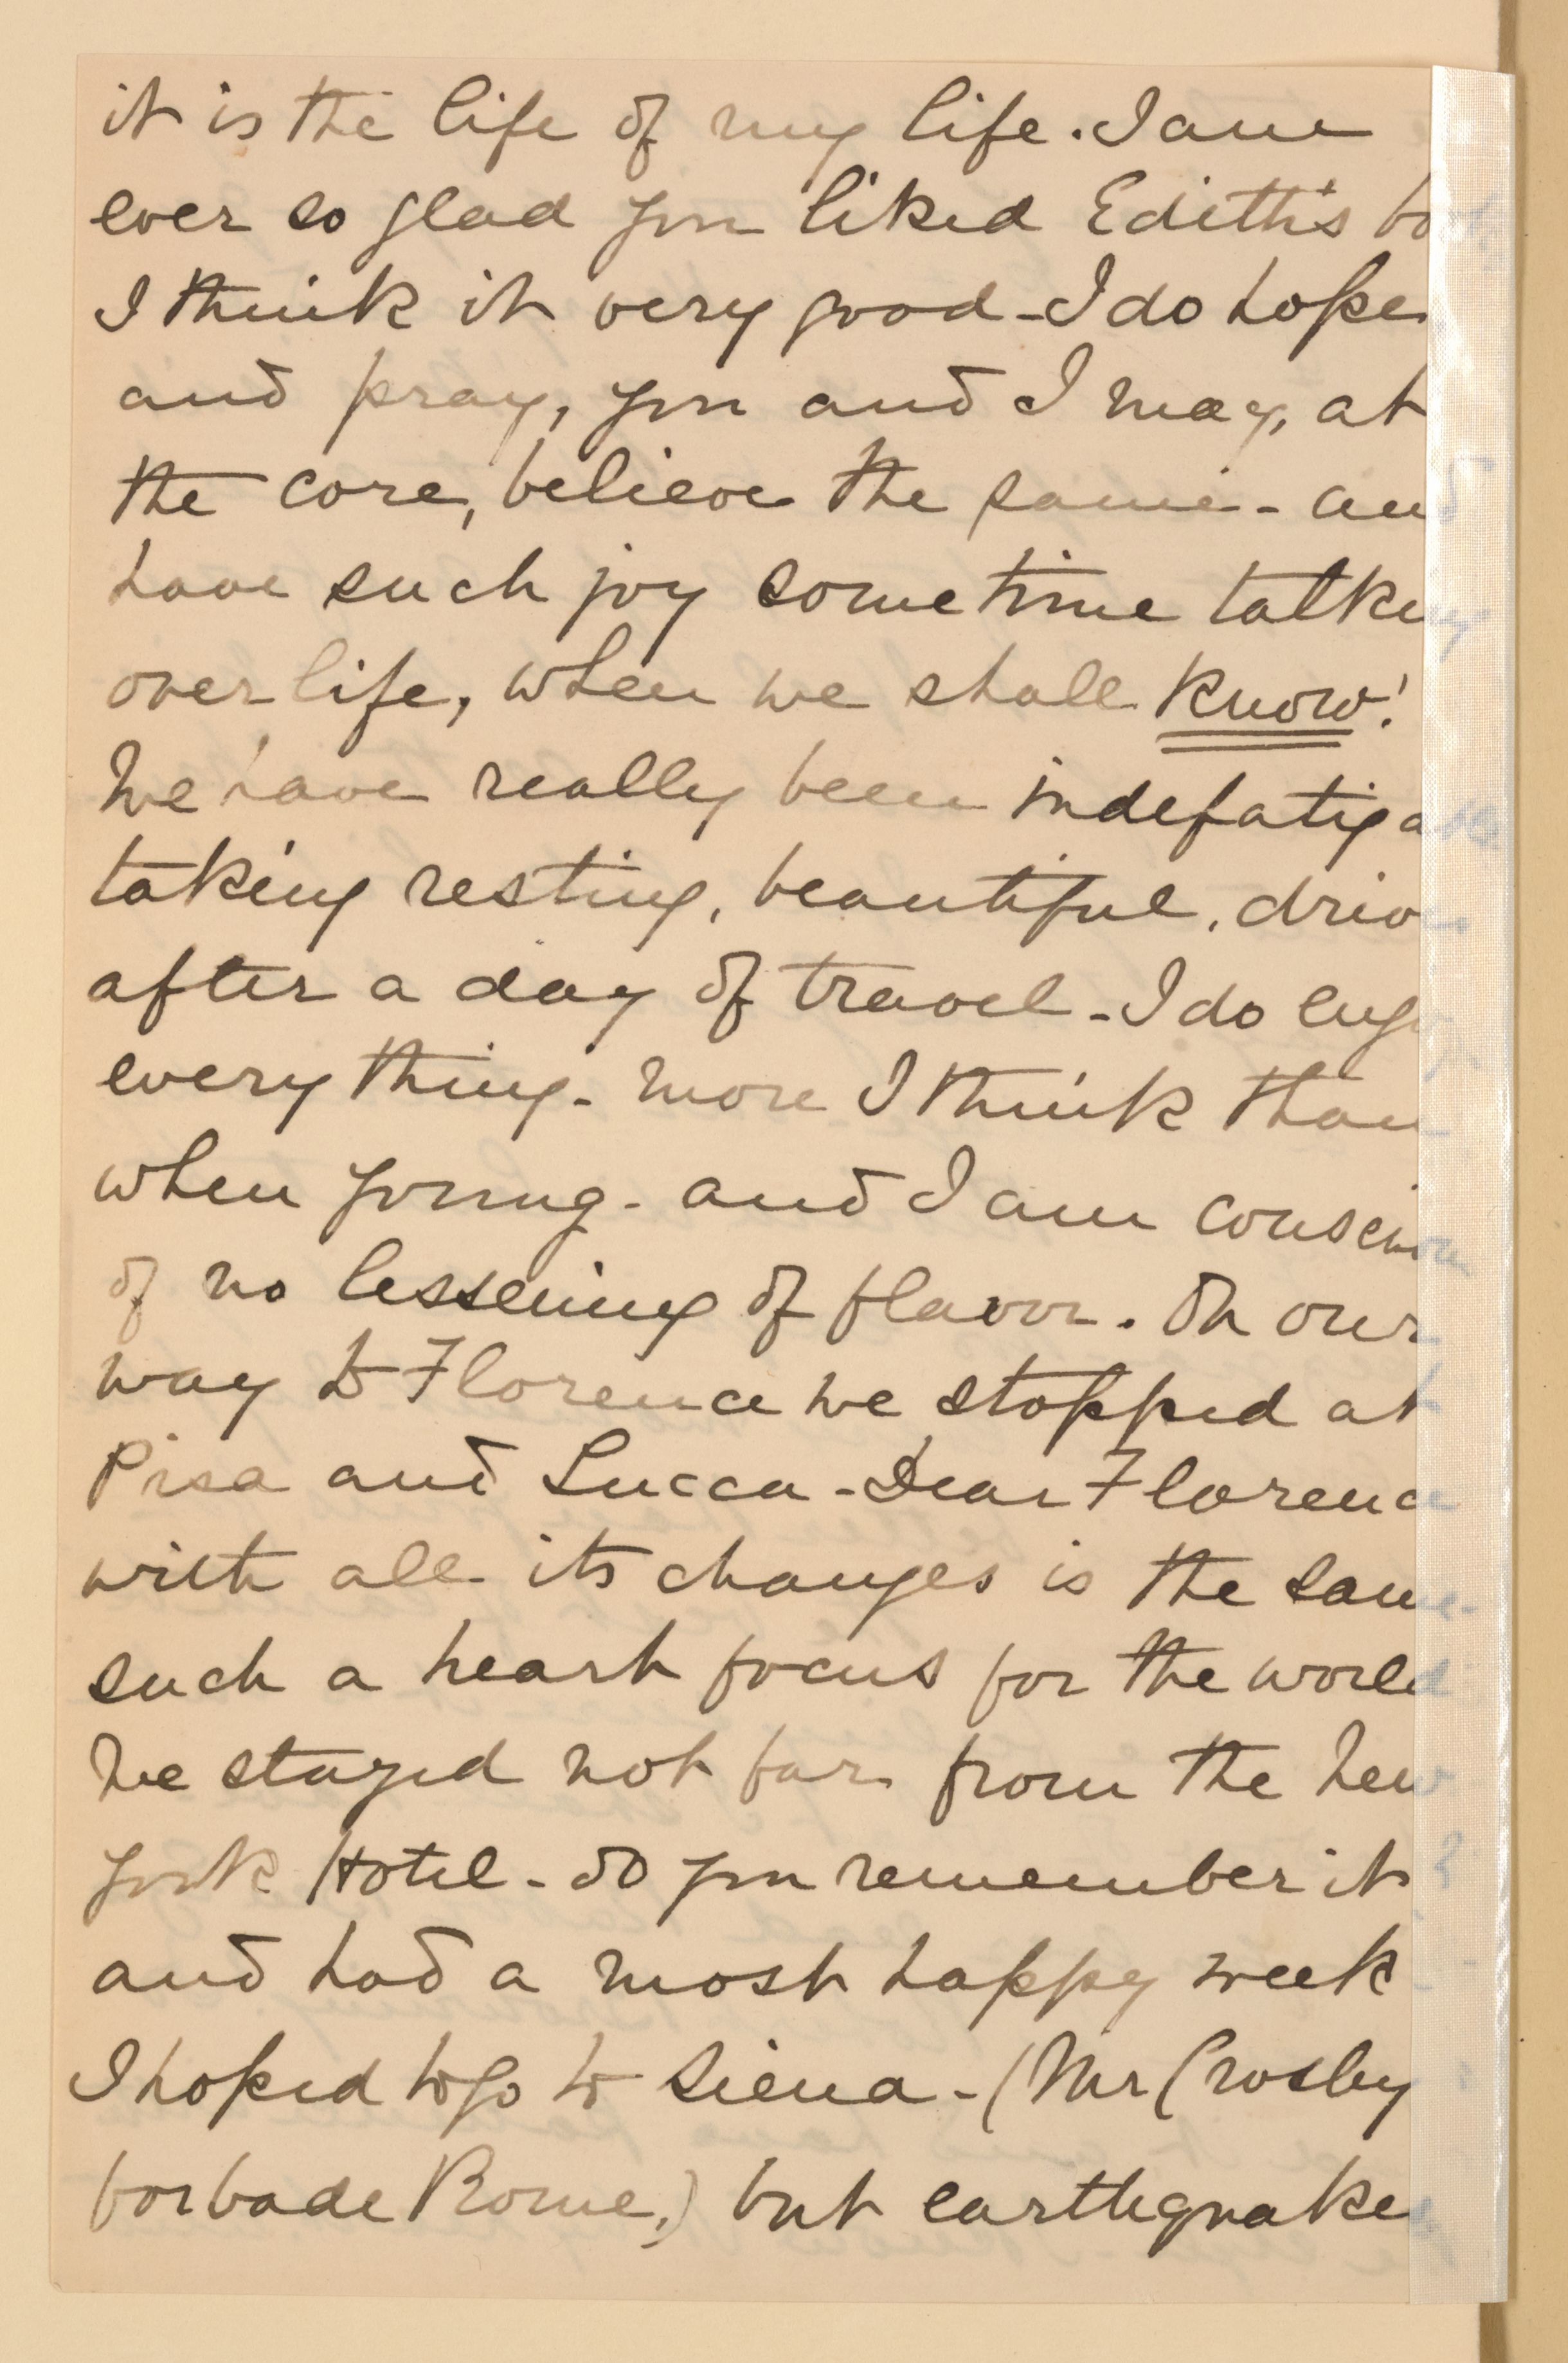 it is the life of my life. I am
ever so glad you liked Edith's book
I think it very good - I do hope
and pray, you and I may, at
the core, believe the same - and
have such joy sometime talking
over life, when we shall know!
We have really been indefatigable
taking resting, beautiful, drives
after a day of travel - I do enjoy
every thing - more I think than
when young - and I am conscious
of no lessening of flavor. On our
way to Florence we stopped at
Pisa and Lucca - Dear Florence
with all its changes is the same -
such a heart focus for the world
We stayed not far from the New
York Hotel - do you remember it?
and had a most happy week -
I hoped to go to Siena - (Mr Crosby
forbade Rome,) but earthquakes